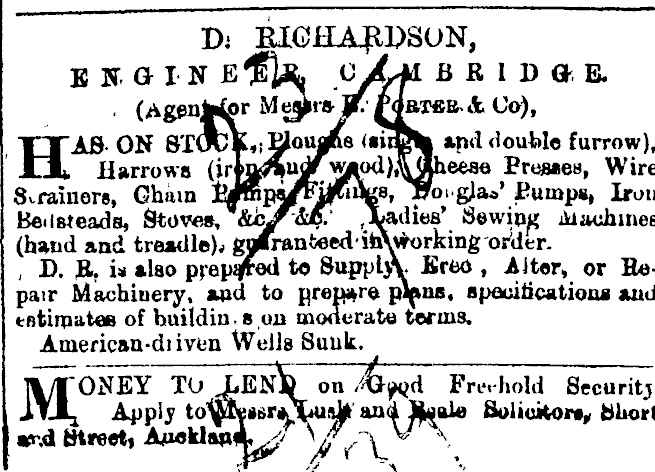 D. RICHARDSON,
ENGINEER, CAMBRIDGE.
(Agent for Messrs E. PORTER & Co),
HAS ON STOCK, Ploughs (single and double furrow),
Harrows (iron and wood), Cheese Presses, Wire
Strainers, Chain Pumps, Fittings, Douglas' Pumps, Iron
Bedsteads, Stoves, &c., &c. Ladies' Sewing Machines
(hand and treadle), guaranteed in working order.
D. R. is also prepared to Supply, Erec , Alter, or Re-
pair Machinery, and to prepare plans, specifications and
estimates of buildin s on moderate terms.
American-driven Wells Sunk.
MONEY TO LEND on Good Freehold Security
Apply to Messrs Lusk and Solicitors, Short
and Street, Auckland.